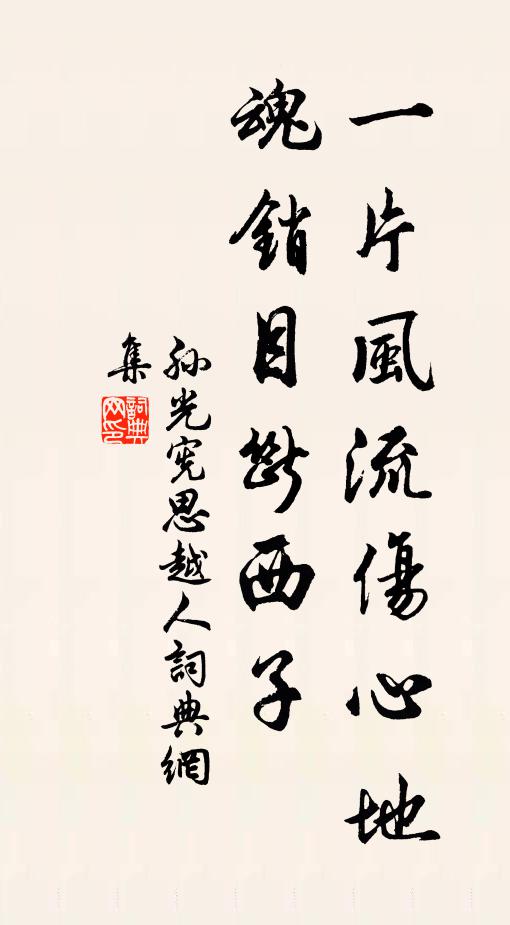 一片風流傷心地
魂銷目斷西子
孙光宪思越人詞典網
集
詞典网印